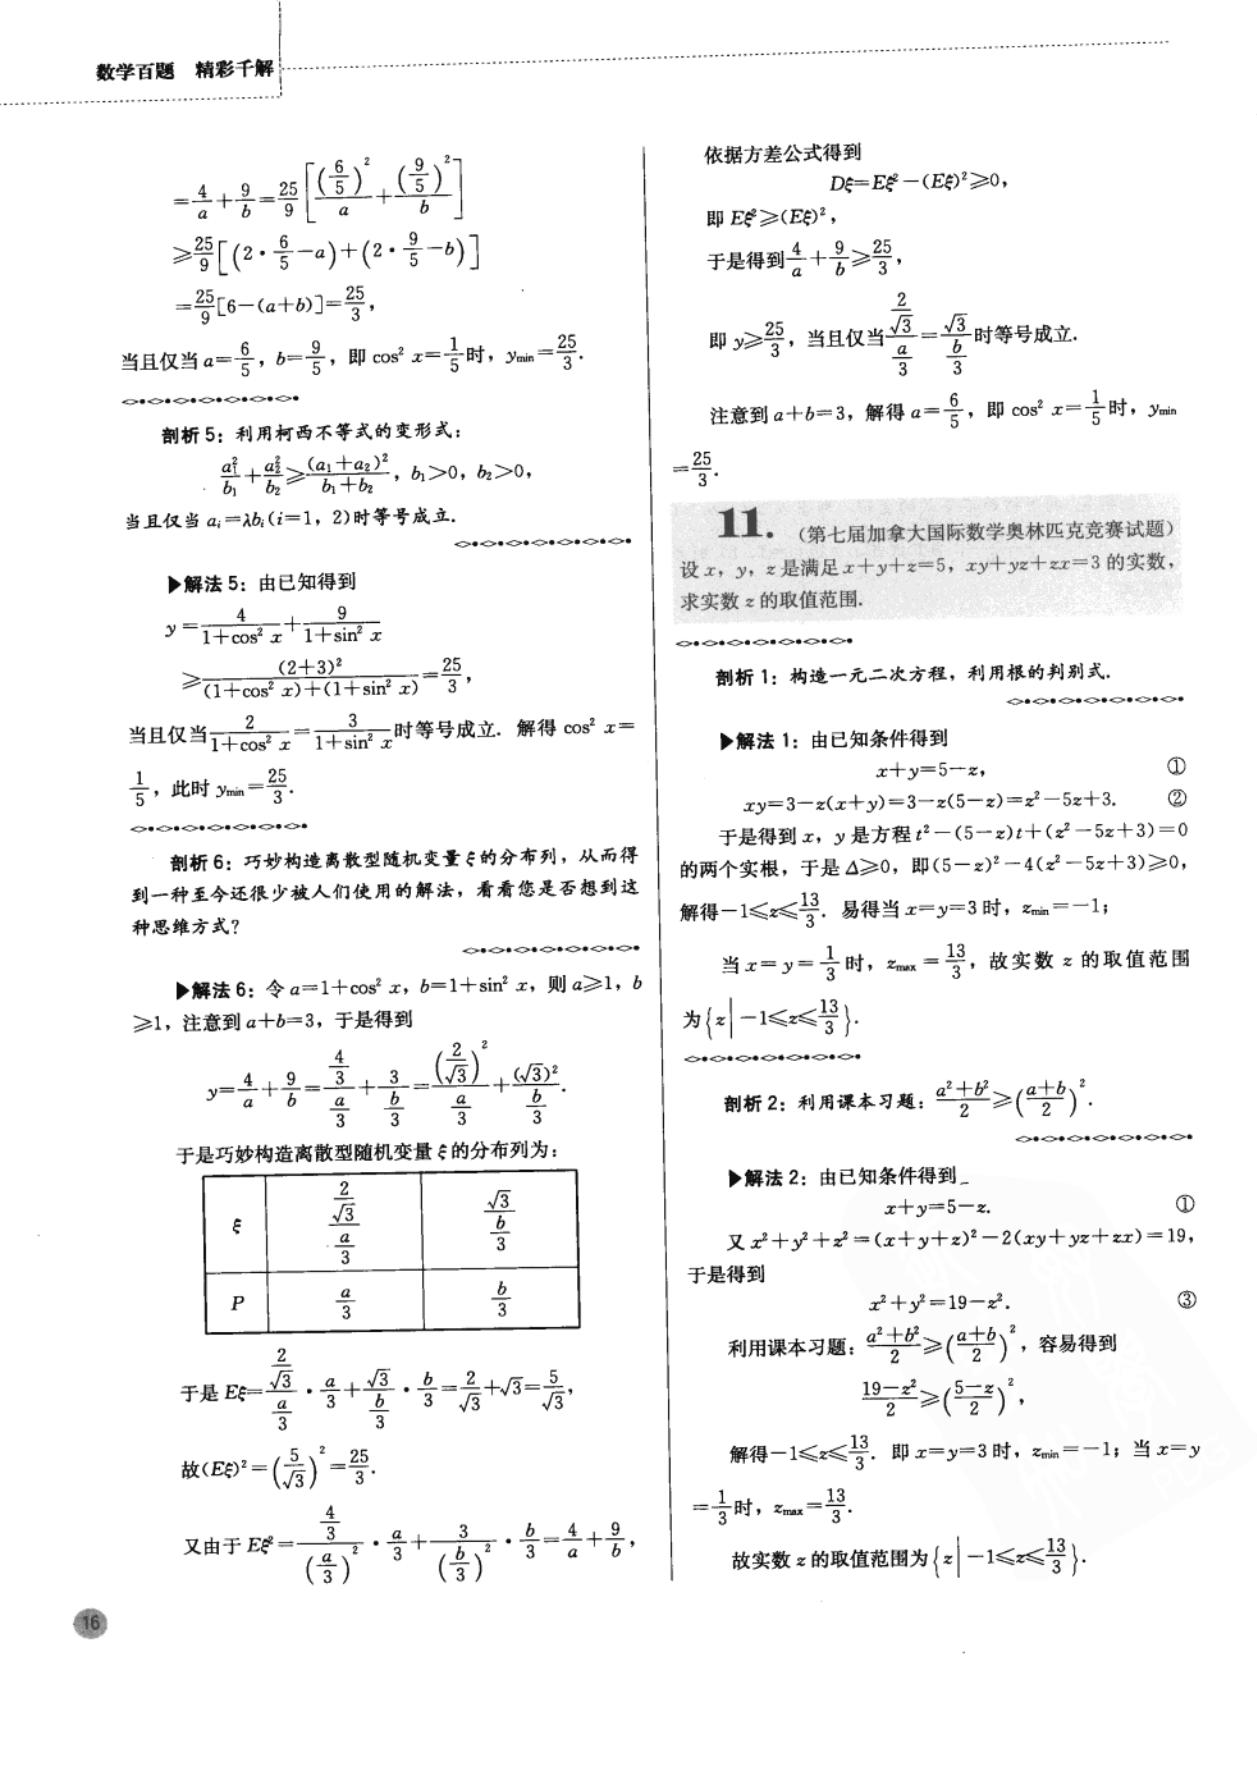 数学百题　精彩千解
=4/a+9/b=25/9[(6/5)²/a+(9/5)²/b]
≥25/9[(2·6/5-a)+(2·9/5-b)]
=25/9[6-(a+b)]=25/3，
当且仅当a=6/5，b=9/5，即 cos² x=1/5时，y_min=25/3.
剖析 5：利用柯西不等式的变形式：
a₁²/b₁+a₂²/b₂≥(a₁+a₂)²/(b₁+b₂)，b₁>0，b₂>0，
当且仅当 aᵢ=λbᵢ(i=1，2)时等号成立.
▶解法 5：由已知得到
y=4/(1+cos² x)+9/(1+sin² x)
≥(2+3)²/((1+cos² x)+(1+sin² x))=25/3，
当且仅当2/(1+cos² x)=3/(1+sin² x)时等号成立. 解得 cos² x=
1/5，此时 y_min=25/3.
剖析 6：巧妙构造离散型随机变量ξ的分布列，从而得
到一种至今还很少被人们使用的解法，看看您是否想到这
种思维方式？
▶解法 6：令 a=1+cos² x，b=1+sin² x，则 a≥1，b
≥1，注意到 a+b=3，于是得到
y=4/a+9/b=(4/3)/(a/3)+3/(b/3)=(2/√3)²/(a/3)+(√3)²/(b/3).
于是巧妙构造离散型随机变量ξ的分布列为：
ξ (2/√3)/(a/3) √3/(b/3)
P a/3 b/3
于是 Eξ=(2/√3)/(a/3)·a/3+√3/(b/3)·b/3=2/√3+√3=5/√3，
故(Eξ)²=(5/√3)²=25/3.
又由于 Eξ²=(4/3)/(a/3)²·a/3+3/(b/3)²·b/3=4/a+9/b，
16
依据方差公式得到
Dξ=Eξ²-(Eξ)²≥0，
即 Eξ²≥(Eξ)²，
于是得到4/a+9/b≥25/3，
即 y≥25/3，当且仅当(2/√3)/(a/3)=√3/(b/3)时等号成立.
注意到 a+b=3，解得 a=6/5，即 cos² x=1/5时，y_min
=25/3.
11.（第七届加拿大国际数学奥林匹克竞赛试题）
设 x，y，z 是满足 x+y+z=5，xy+yz+zx=3 的实数，
求实数 z 的取值范围.
剖析 1：构造一元二次方程，利用根的判别式.
▶解法 1：由已知条件得到
x+y=5-z，　①
xy=3-z(x+y)=3-z(5-z)=z²-5z+3.　②
于是得到 x，y 是方程 t²-(5-z)t+(z²-5z+3)=0
的两个实根，于是 Δ≥0，即(5-z)²-4(z²-5z+3)≥0，
解得-1≤z≤13/3. 易得当 x=y=3 时，z_min=-1；
当 x=y=1/3时，z_max=13/3，故实数 z 的取值范围
为{z|-1≤z≤13/3}.
剖析 2：利用课本习题：(a²+b²)/2≥((a+b)/2)².
▶解法 2：由已知条件得到
x+y=5-z.　①
又 x²+y²+z²=(x+y+z)²-2(xy+yz+zx)=19，
于是得到
x²+y²=19-z².　③
利用课本习题：(a²+b²)/2≥((a+b)/2)²，容易得到
(19-z²)/2≥((5-z)/2)²，
解得-1≤z≤13/3. 即 x=y=3 时，z_min=-1；当 x=y
=1/3时，z_max=13/3.
故实数 z 的取值范围为{z|-1≤z≤13/3}.